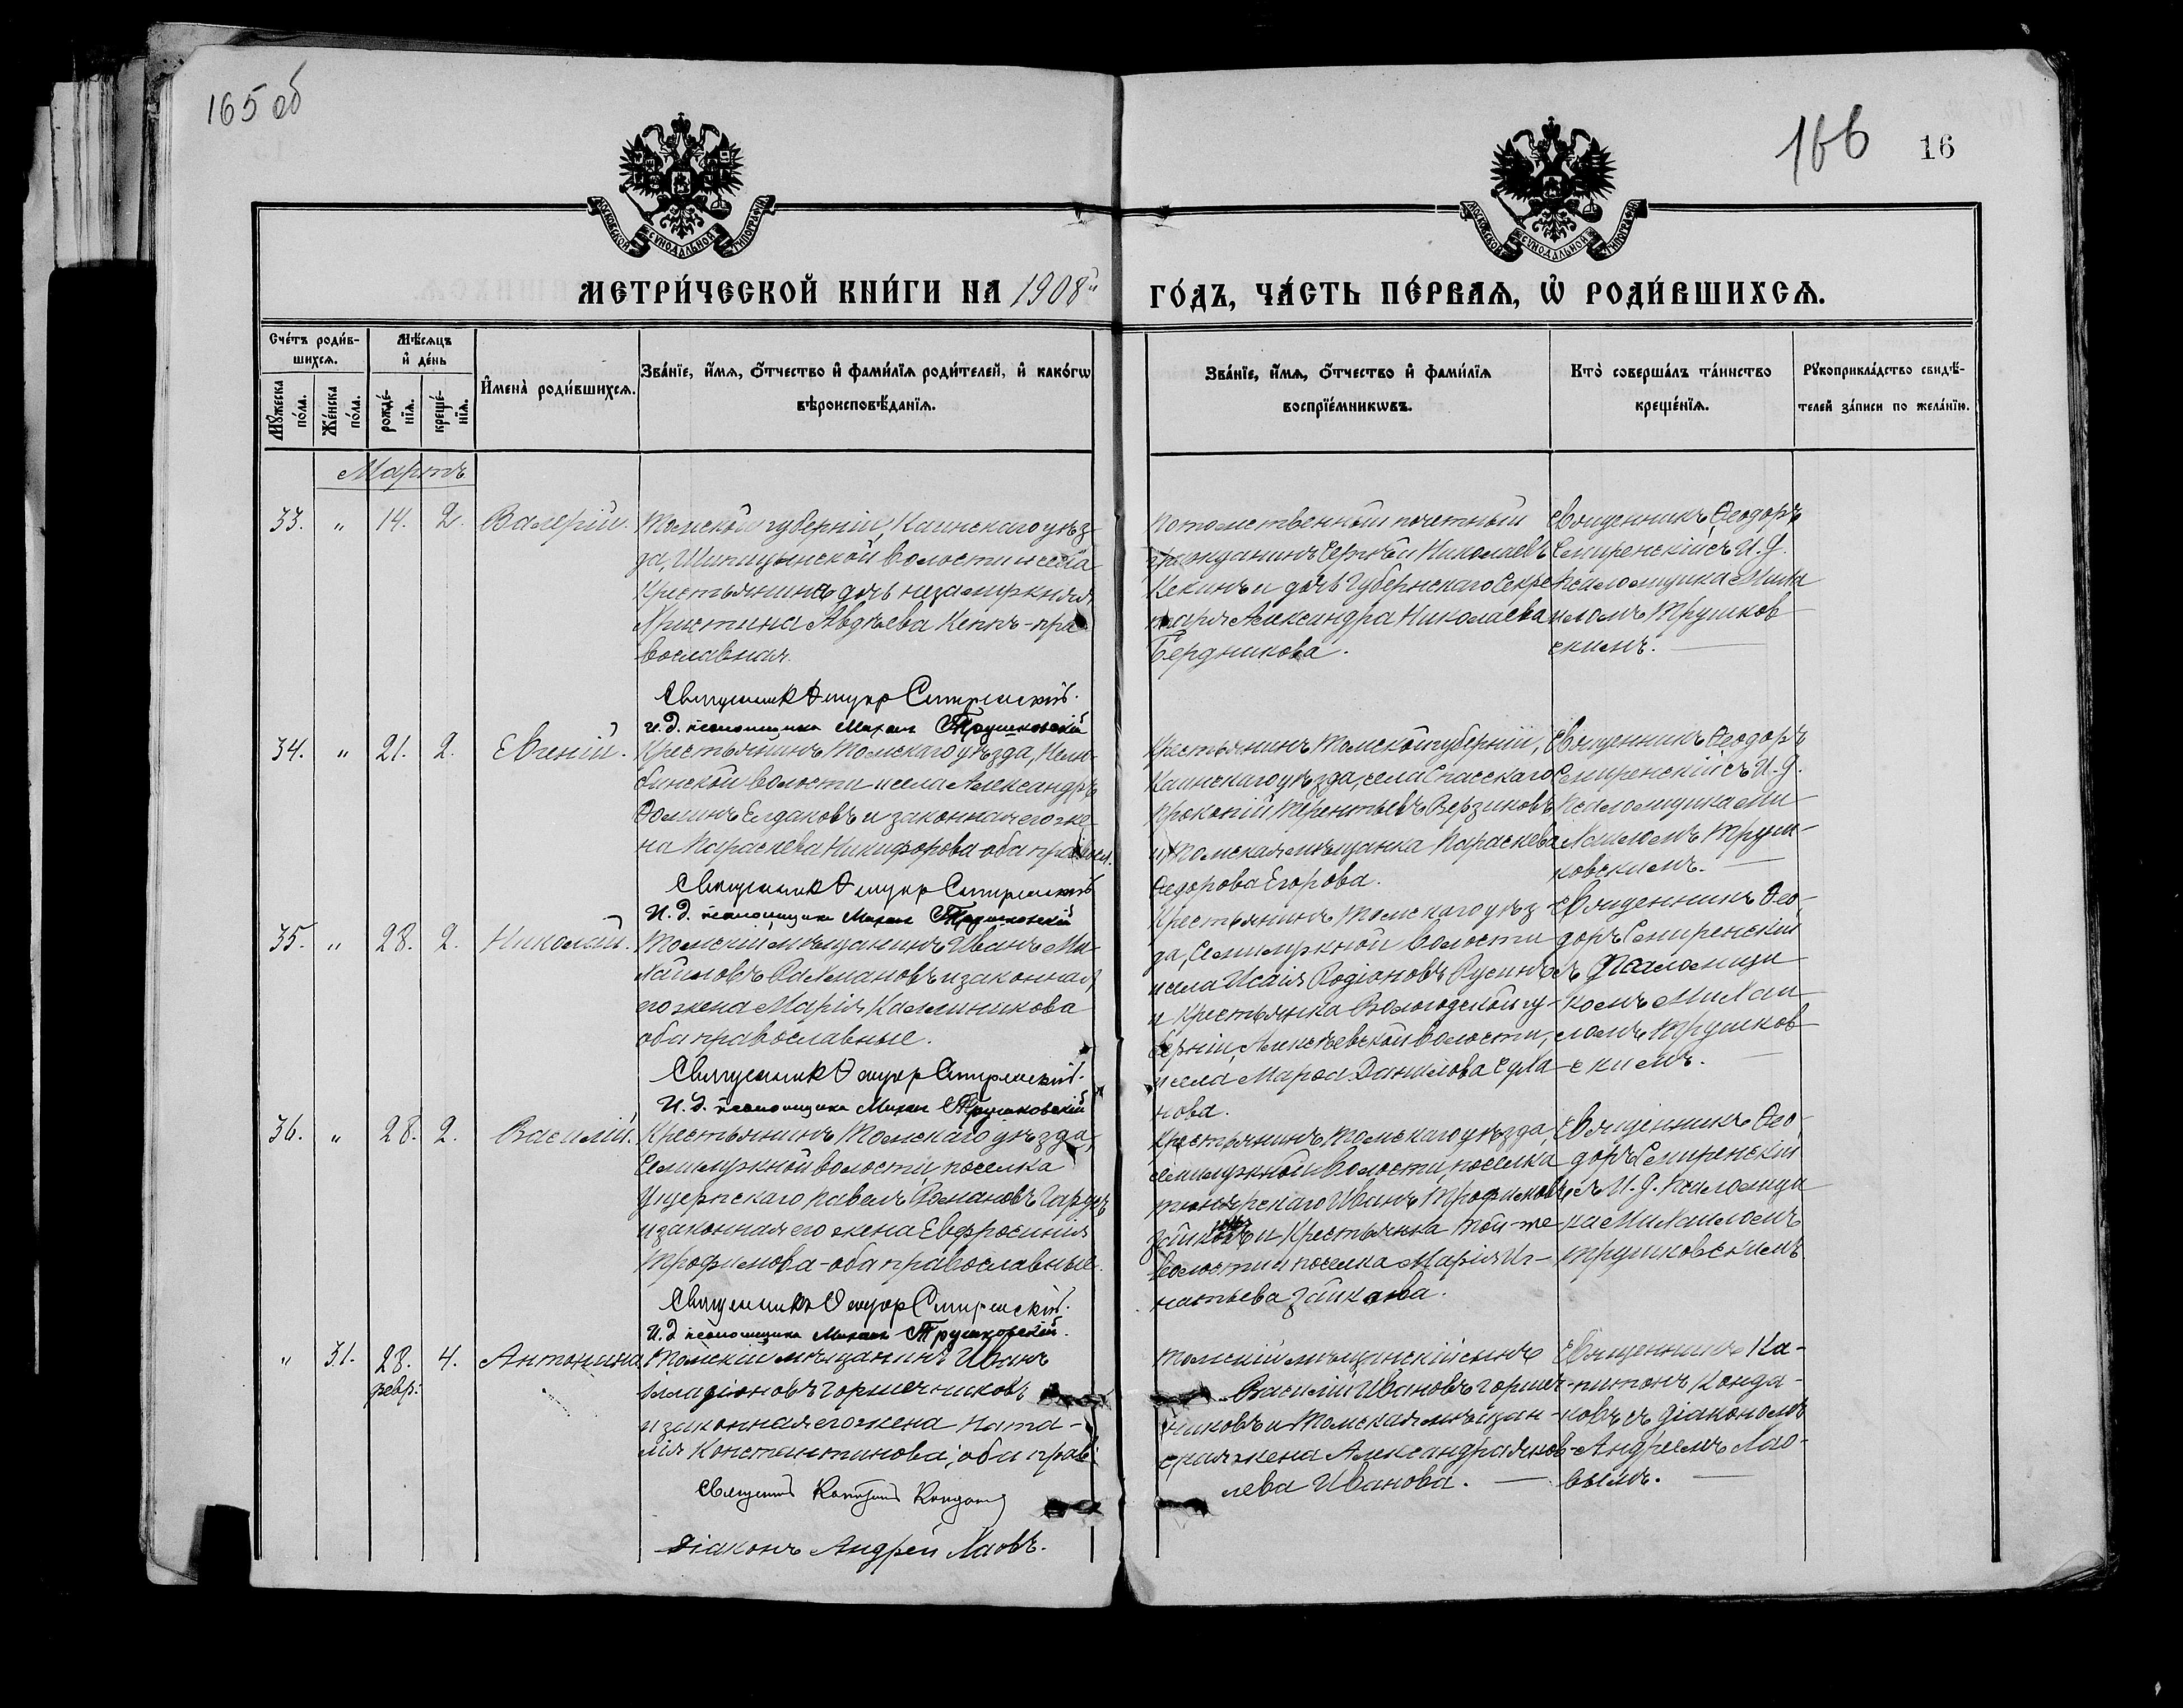 165 об
166
16
МОСКОВСКОЙ СѴНОДАЛЬНОЙ ТИПОГРАФІИ
МОСКОВСКОЙ СѴНОДАЛЬНОЙ ТИПОГРАФІИ
МЕТРИ́ЧЕСКОЙ КНИ́ГИ НА 1908й
ГО́ДЪ, ЧА́СТЬ ПЕ́РВАѦ, Ѡ РОДИ́ВШИХСѦ.
Сче́тъ роди́в-
шихсѧ.
Мꙋжеска по́ла.
Же́нска по́ла.
Мѣ́сѧцъ
и҆ де́нь
рожде́-
нїѧ.
креще́-
нїѧ.
И҆мена̀ роди́вшихсѧ.
Зва́нїе, и҆́мѧ, ѻ҆́тчество и҆ фами́лїѧ роди́телей, и҆ како́гѡ
вѣроисповѣ́данїѧ.
Зва́нїе, и҆́мѧ, ѻ҆́тчество и҆ фами́лїѧ
воспрїе́мникѡвъ.
Кто̀ соверша́лъ та́инство
креще́нїѧ.
Рꙋкоприкла́дство свидѣ́-
телей за́писи по жела́нїю.
Мартъ
33. " 14. 2. Валерій.
Томской губерніи, Каинскаго уѣз-
да, Шипицынской волости и села
Крестьянина дочь незамужняя
Христина Авдѣева Кеппъ - пра-
вославная.
Священник Ѳеодор Смиренскій.
И. д. псаломщика Михаил Трушковскій
Потомственный почетный
гражданинъ Сергѣй Николаевъ
Кекинъ и дочь Губернскаго Секре-
таря Александра Николаева
Бердникова.
Священникъ Ѳеодоръ
Смиренскій съ И. д.
Псаломщика Миха
иломъ Трушков
скимъ.
34. " 21. 2. Евгеній.
Крестьянинъ Томскаго уѣзда, Нелю-
бинской волости и села Александръ
Ѳоминъ Елдаковъ и законная его же-
на Параскева Никифорова оба правосл.
Священник Ѳеодор Смиренскій
И. д. псаломщика Михаил Трушковскій
Крестьянинъ Томской губерніи,
Каинскаго уѣзда, села Спасскаго
Прокопій Терентьевъ Верзиковъ
и Томская мѣщанка Параскева
Ѳедорова Егорова.
Священникъ Ѳеодоръ
Смиренскій съ И. д.
Псаломщика Ми
хаиломъ Труш-
ковскимъ.
35. " 28. 2. Николай.
Томскій мѣщанинъ Иванъ Ми-
хайловъ Рахмановъ и законная
его жена Марія Каллиникова
оба православные.
Священник Ѳеодор Смиренскій.
И. д. псаломщика Михаил Трушковскій
Крестьянинъ Томскаго уѣз-
да, Семилужной волости
и села Исаія Родіоновъ Русинъ
и Крестьянка Вологодской гу-
берніи, Алексѣевской волости,
и села Марѳа Данилова Суха
нова.
Священникъ Ѳео-
доръ Смиренскій
съ Псаломщи
комъ Михаи
ломъ Трушков
скимъ.
36. " 28. 2. Василій.
Крестьянинъ Томскаго уѣзда,
Семилужной волости, поселка
Павелъ Романовъ
и законная его жена Евфросинія
Трофимова - оба православные.
Священникъ Ѳеодор Смиренскій.
И. д. псаломщика Михаил Трушковскій.
Крестьянинъ Томскаго уѣзда,
Семилужной волости, поселка
Иванъ Трофимовъ
Зайковъ и Крестьянка той-же
волости и поселка Марія Иг-
натьева Зайкова.
Священникъ Ѳео-
доръ Смиренскій
съ И. д. Псаломщи
ка Михаиломъ
Трушковскимъ
" 31. 28. февр: 4. Антонина
Томскій мѣщанинъ Иванъ
Илларіоновъ Горшечниковъ
и законная его жена Ната-
лія Константинова, оба прав:
Священникъ Капитонъ Кондаковъ
Діаконъ Андрей Лаовъ.
Томскій мѣщанскій сынъ
Василій Ивановъ Горшеч-
никовъ и Томская мѣщан-
ская жена Александра Яков-
лева Иванова.
Священникъ Ка-
питонъ Конда-
ковъ съ діакономъ
Андреемъ Лао-
вымъ.